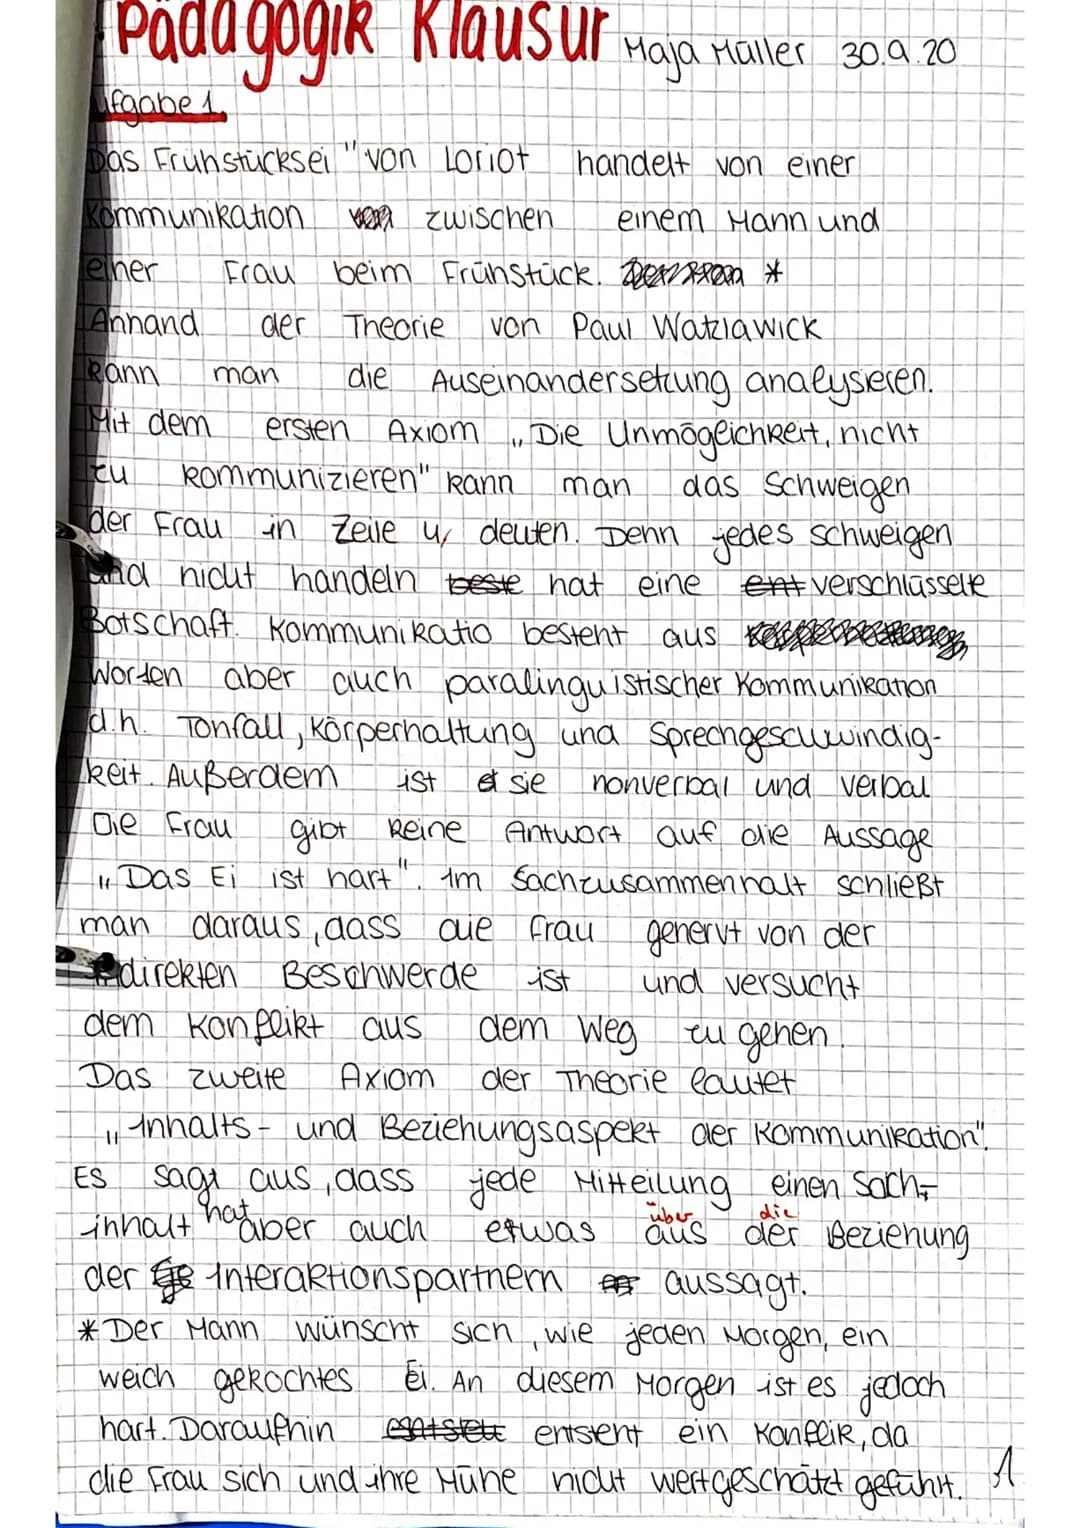 Pädagogik Klausur Maja Müller 30.9.20
ufgabe 1.
Das Frühstücksei" von Loriot handelt von einer
Kommunikation von zwischen einem Mann und
einer Frau beim Frühstück. *
Anhand der Theorie von Paul Watzlawick
kann man die Auseinandersetzung analysieren.
Mit dem ersten Axiom „Die Unmöglichkeit, nicht
zu kommunizieren" kann man das Schweigen
der Frau in Zeile 4, deuten. Denn jedes schweigen
und nicht handeln beste hat eine ent verschlüsselte
Botschaft. Kommunikatio besteht aus
Worten aber auch paralinguistischer Kommunikation
d.h. Tonfall, Körperhaltung und Sprechgeschwindig-
keit. Außerdem ist sie nonverbal und verbal
Die Frau gibt keine Antwort auf die Aussage
„Das Ei ist hart". Im Sachzusammenhalt schließt
man daraus, dass die Frau genervt von der
indirekten Beschwerde ist und versucht
dem Konflikt aus dem Weg zu gehen.
Das zweite Axiom der Theorie lautet
„Inhalts- und Beziehungsaspekt der Kommunikation".
Es sagt aus, dass jede Mitteilung einen Sach-
über die
inhalt hat aber auch etwas aus der Beziehung
der Interaktionspartnern aussagt.
* Der Mann wünscht sich, wie jeden Morgen, ein
weich gekochtes Ei. An diesem Morgen ist es jedoch
hart. Daraufhin entsteht ein Konflik, da
die Frau sich und ihre Mühe nicht wertgeschätzt gefühlt. 1